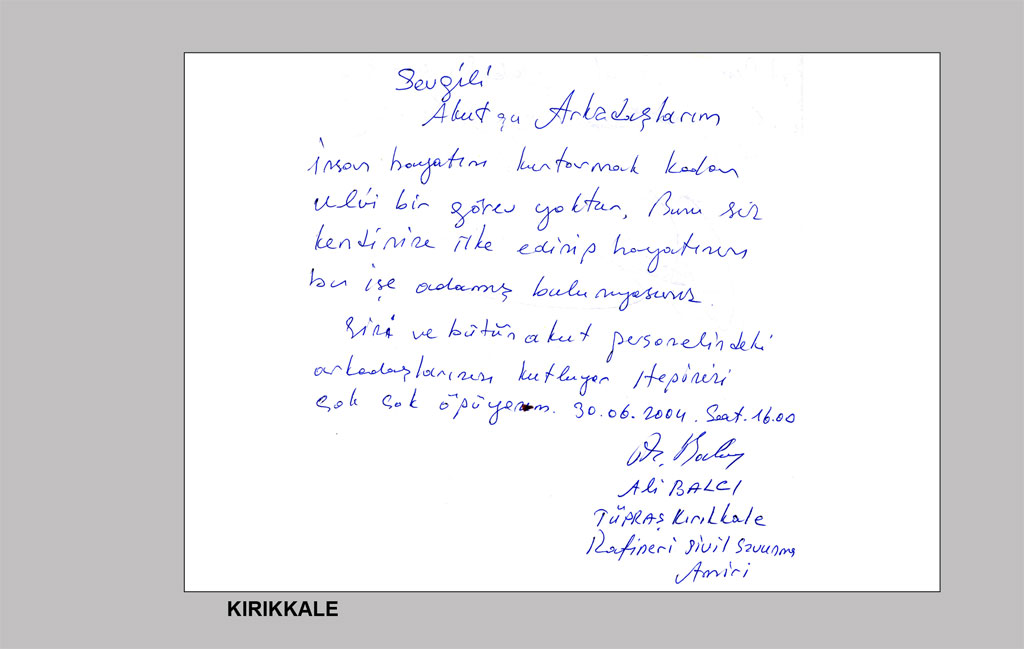 Sevgili
Akut çu Arkadaşlarım
İnsan hayatını kurtarmak kadar
ulvi bir görev yoktur. Bunu siz
kendinize ilke edinip hayatınızı
bu işe adamış bulunuyosunuz.
Sizi ve bütün akut personelindeki
arkadaşlarınızı kutluyor Hepinizi
çok çok öpüyorum. 30.06.2004. Saat. 16.00
Ali BALCI
TÜPRAŞ Kırıkkale
Rafineri Sivil Savunma
Amiri
KIRIKKALE